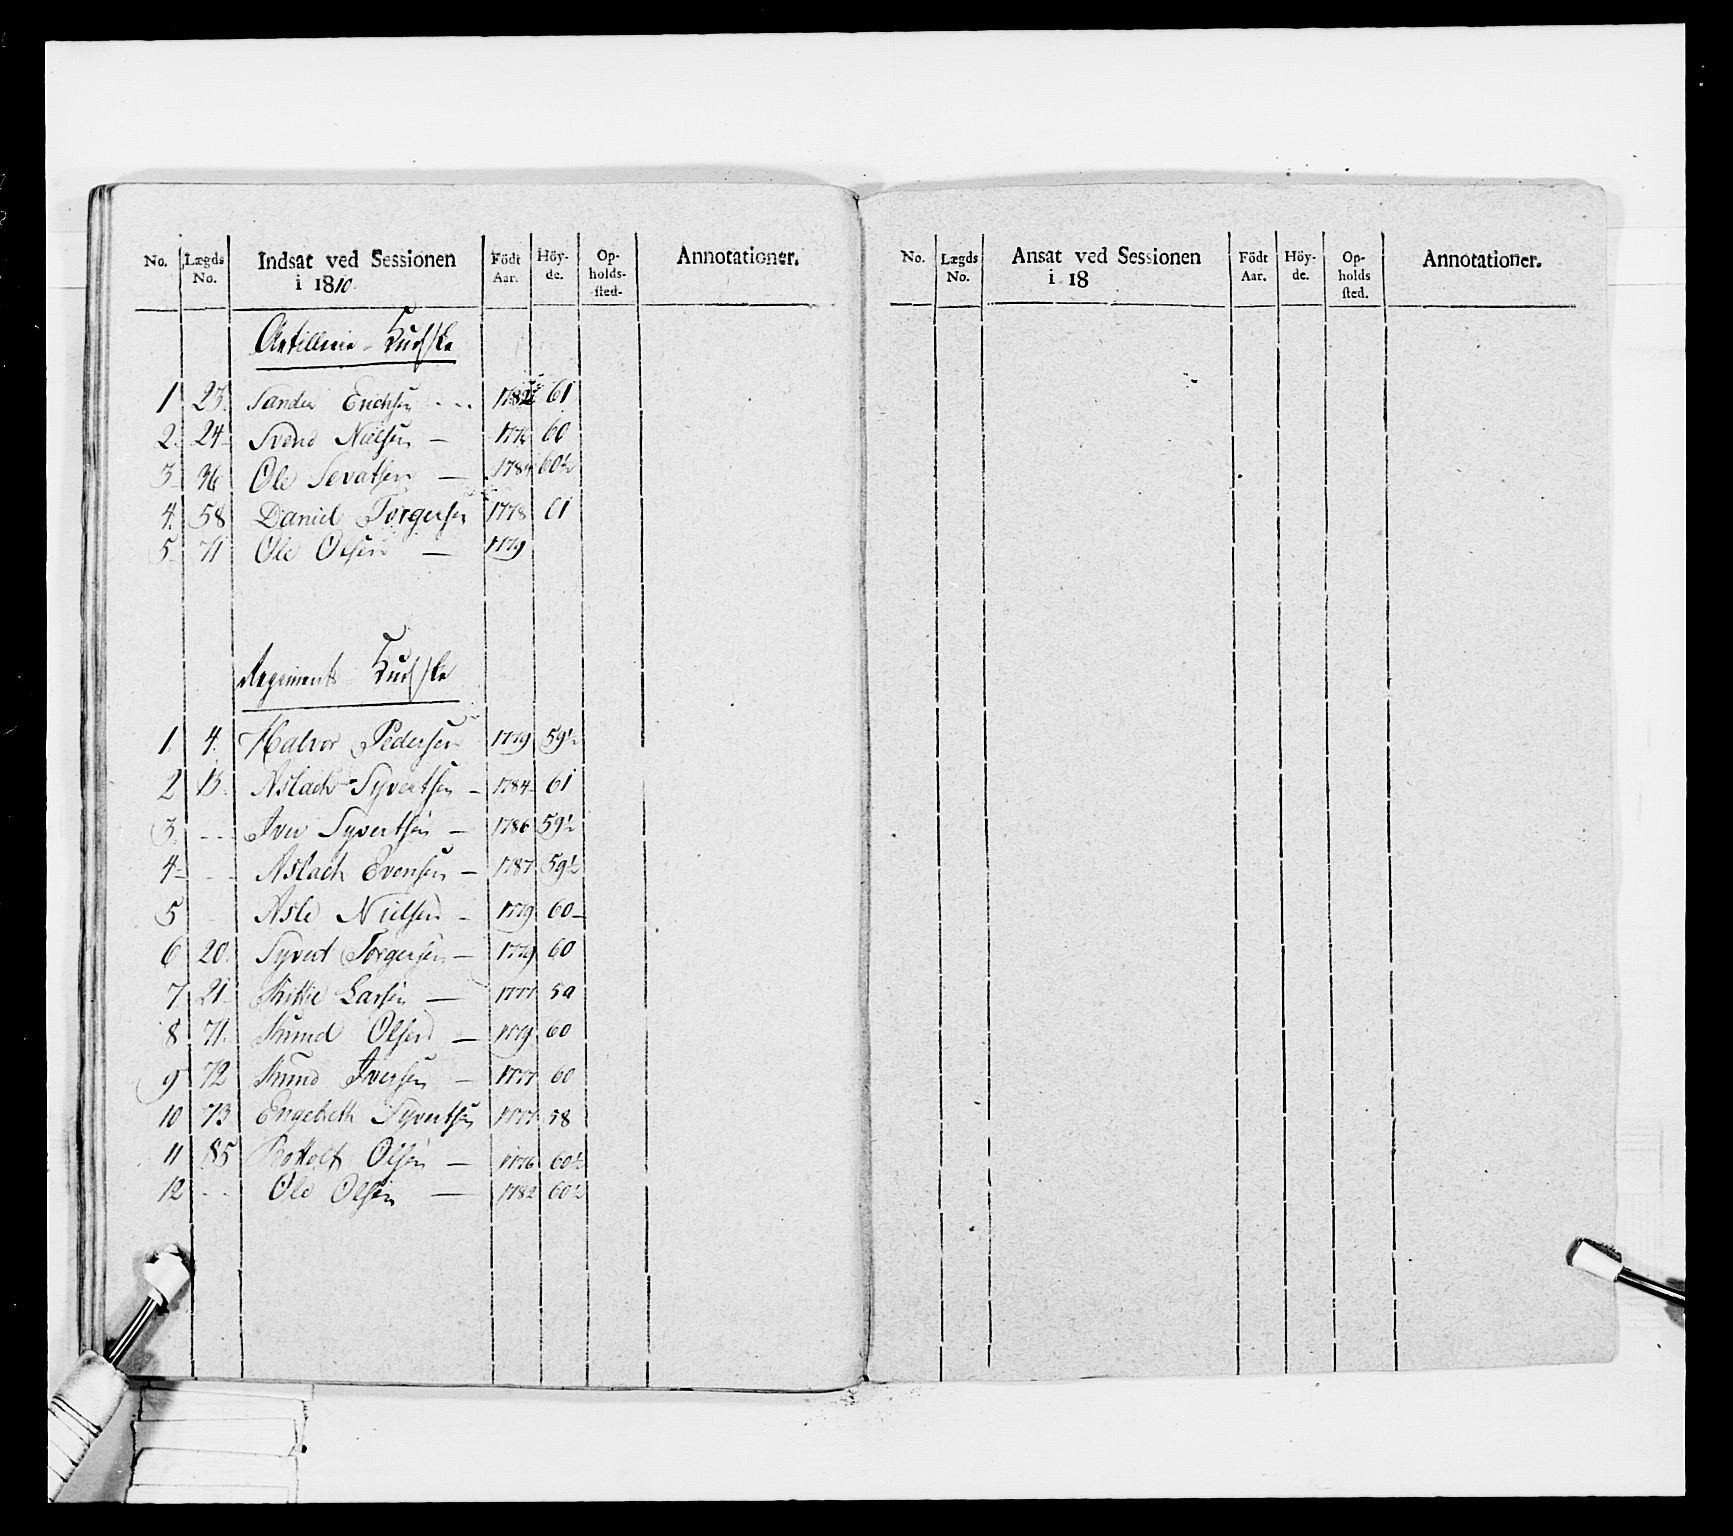 No. Lægds No. Indsat ved Sessionen i 1810. Födt Aar. Höy-de. Op-holds-sted. Annotationer.
Artillerie - Kudske
1 23. Sander Erichsen - - - 61
2. 24 - Svend Nielsen — 1776 60
3 36 Ole Sevatsen — 1784 60½
4. 58 Daniel Torgersen 1778 61
5. 71 Ole Olsen — 1779
Regiments Kudske
1. 4. Halvor Pedersen 1779 59½
2 13. Aslach Syvertsen - 1784 - 61
3. - - - Iver Syvertsen — 1786 59½
4 - - - Aslach Evensen — 1787 59½
5 - Asle Nielsen - 1779 60 -
6 20. Syvert Torgersen — 1779 60
7 21 Larsen — 1777 59
8 71. Knud Olsen — 1779 60
9 72 Knud Iversen — 1777 60
10 73 Engebreth Syvertsen 1777 58
11 85 Olsen — 1776 60½
12 - - Ole Olsen — 1782 60½
No. Lægds No. Ansat ved Sessionen i 18 Födt Aar. Höy-de. Op-holds sted. Annotationer.